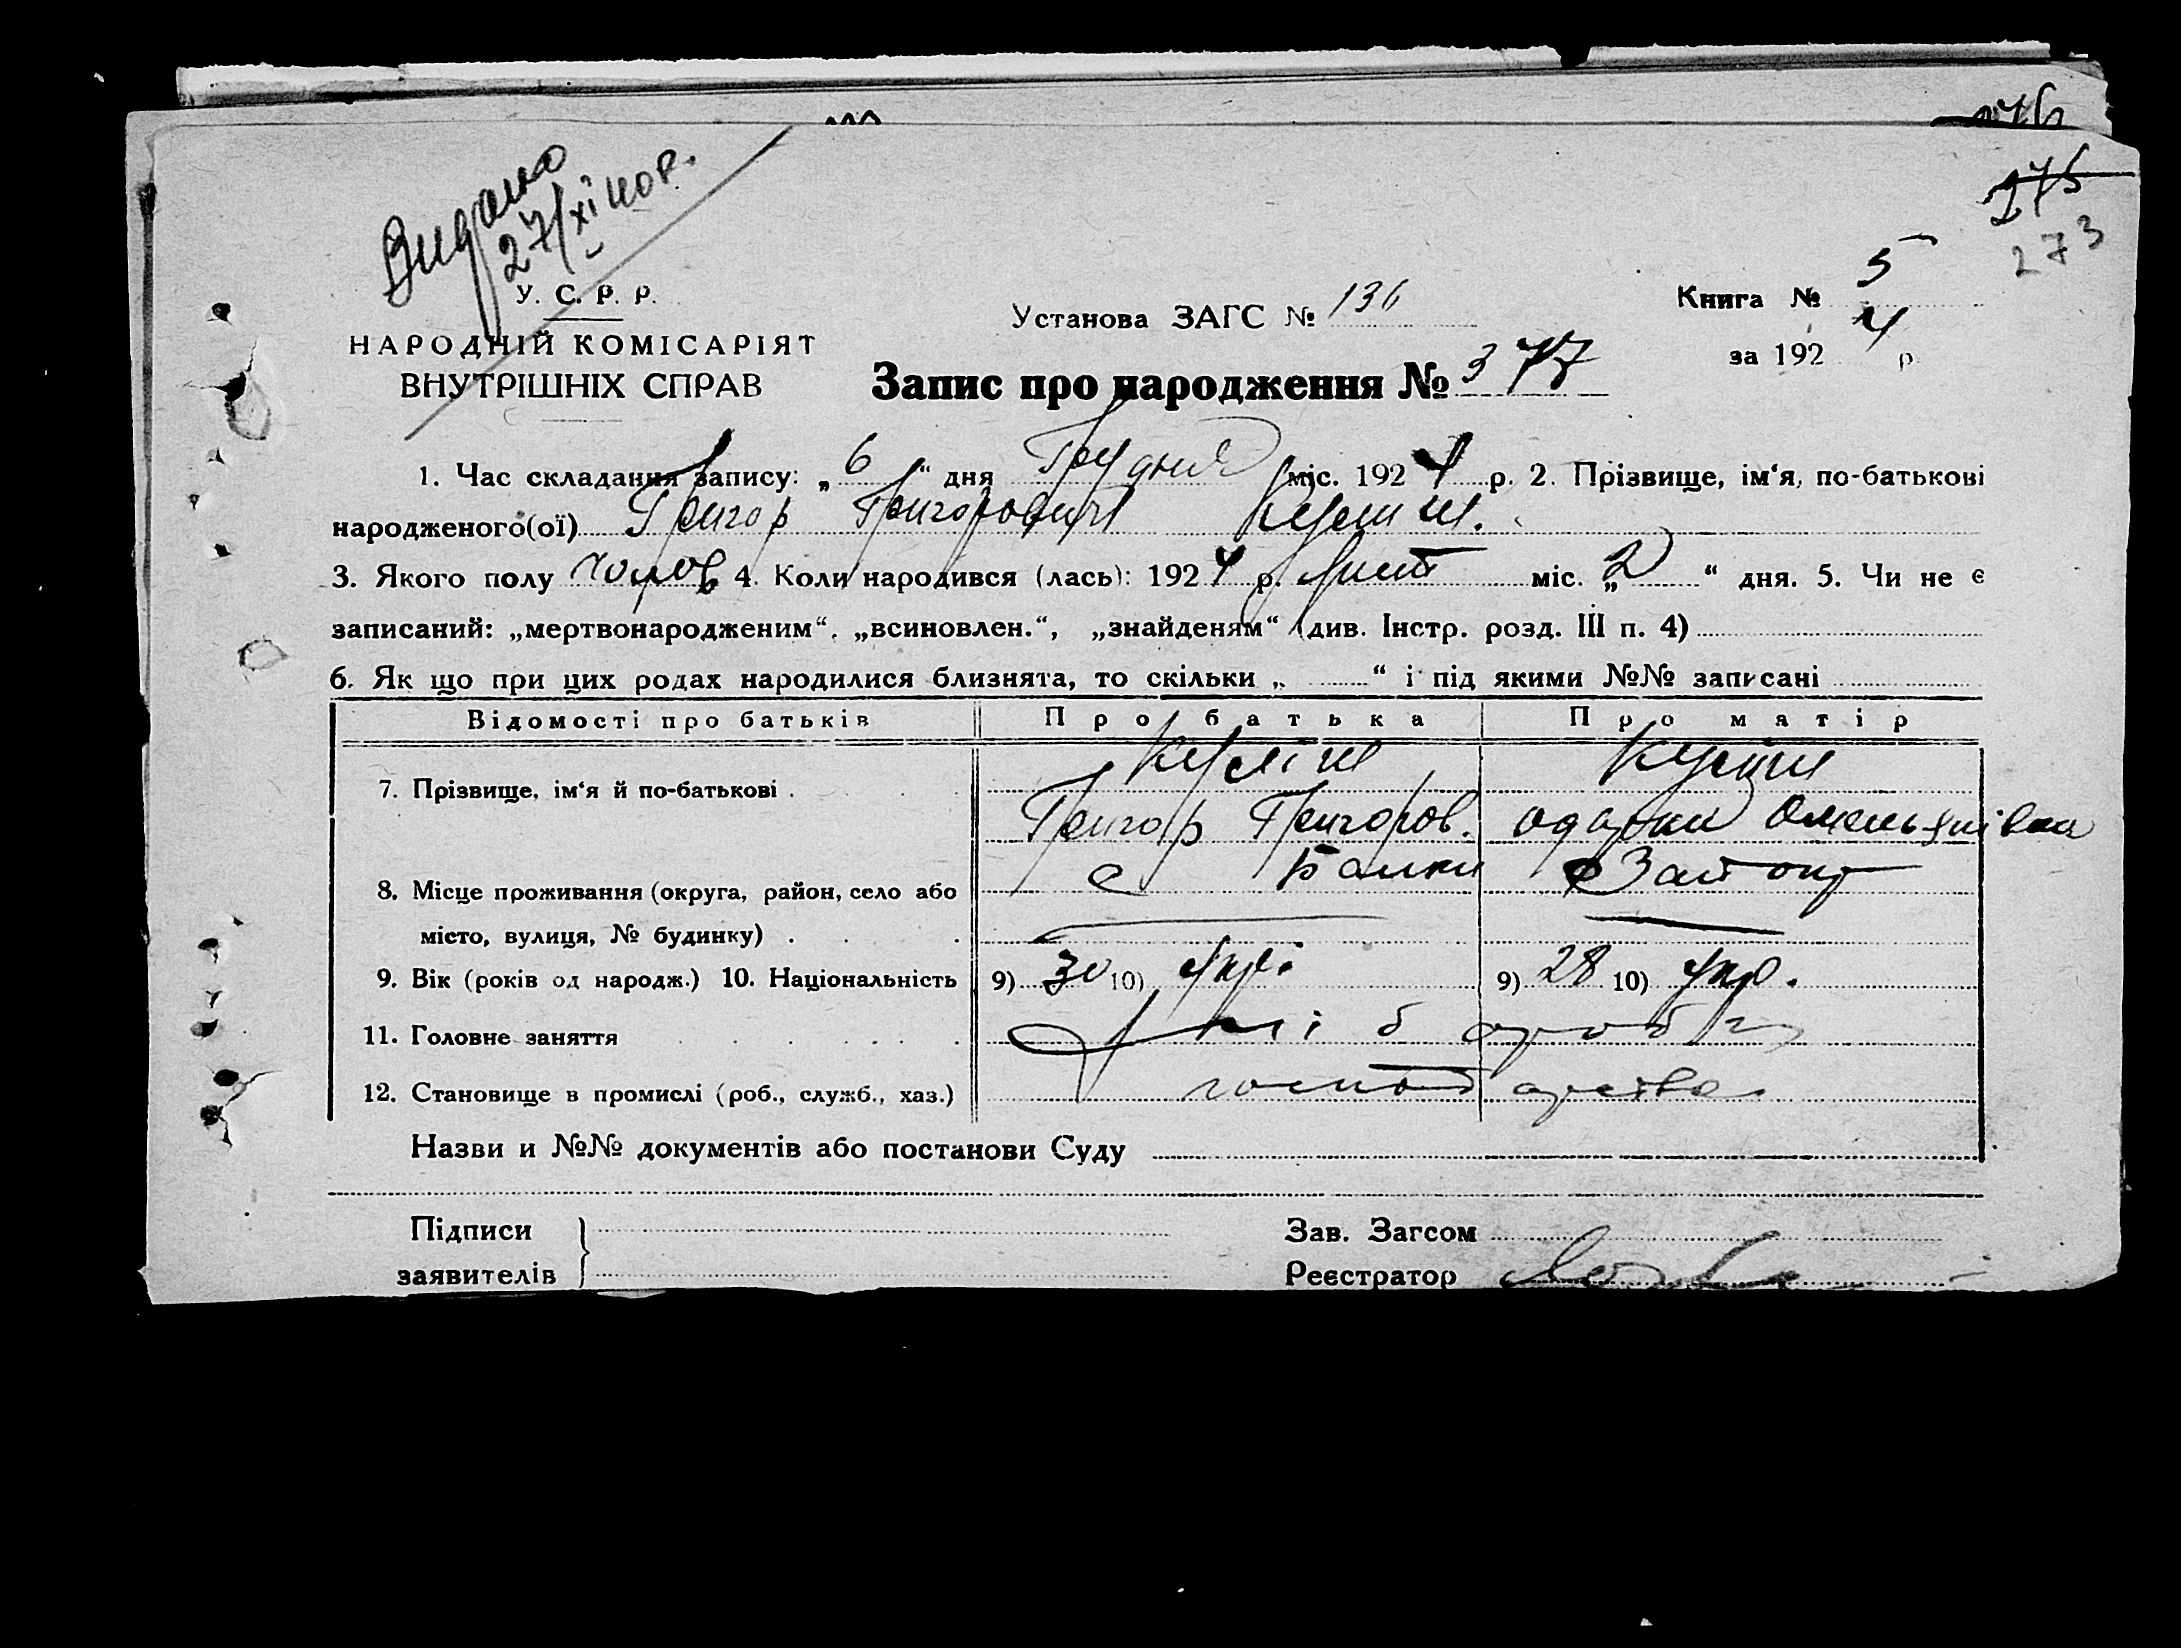 276
275
273
Видано
27/XI 40 р.
У. С. Р. Р.
НАРОДНІЙ КОМІСАРІЯТ
ВНУТРІШНІХ СПРАВ
Установа ЗАГС № 136
Книга № 5
за 1924 р.
Запис про народження № 377
1. Час складання запису: „6“ дня Грудня міс. 1924 р. 2. Прізвище, ім‘я, по-батькові
народженого(ої) Григор Григорович
3. Якого полу чолов 4. Коли народився (лась): 1924 р. Лист міс. „2“ дня. 5. Чи не є
записаний: „мертвонародженим“, „всиновлен.“, „знайденям“ (див. Інстр. розд. III п. 4)
6. Як що при цих родах народилися близнята, то скільки „ “ і під якими №№ записані
Відомості про батьків Про батька Про матір
7. Прізвище, ім‘я й по-батькові .
Григор Григоров. Одарка Омельянівна
8. Місце проживання (округа, район, село або
с Балки
місто, вулиця, № будинку) .
9. Вік (років од народж.) 10. Національність 9) 30 10) Укр. 9) 28 10) Укр.
11. Головне заняття хліборобя
12. Становище в промислі (роб., служб., хаз.) господарства
Назви и №№ документів або постанови Суду
Підписи
заявителів
Зав. Загсом
Реєстратор